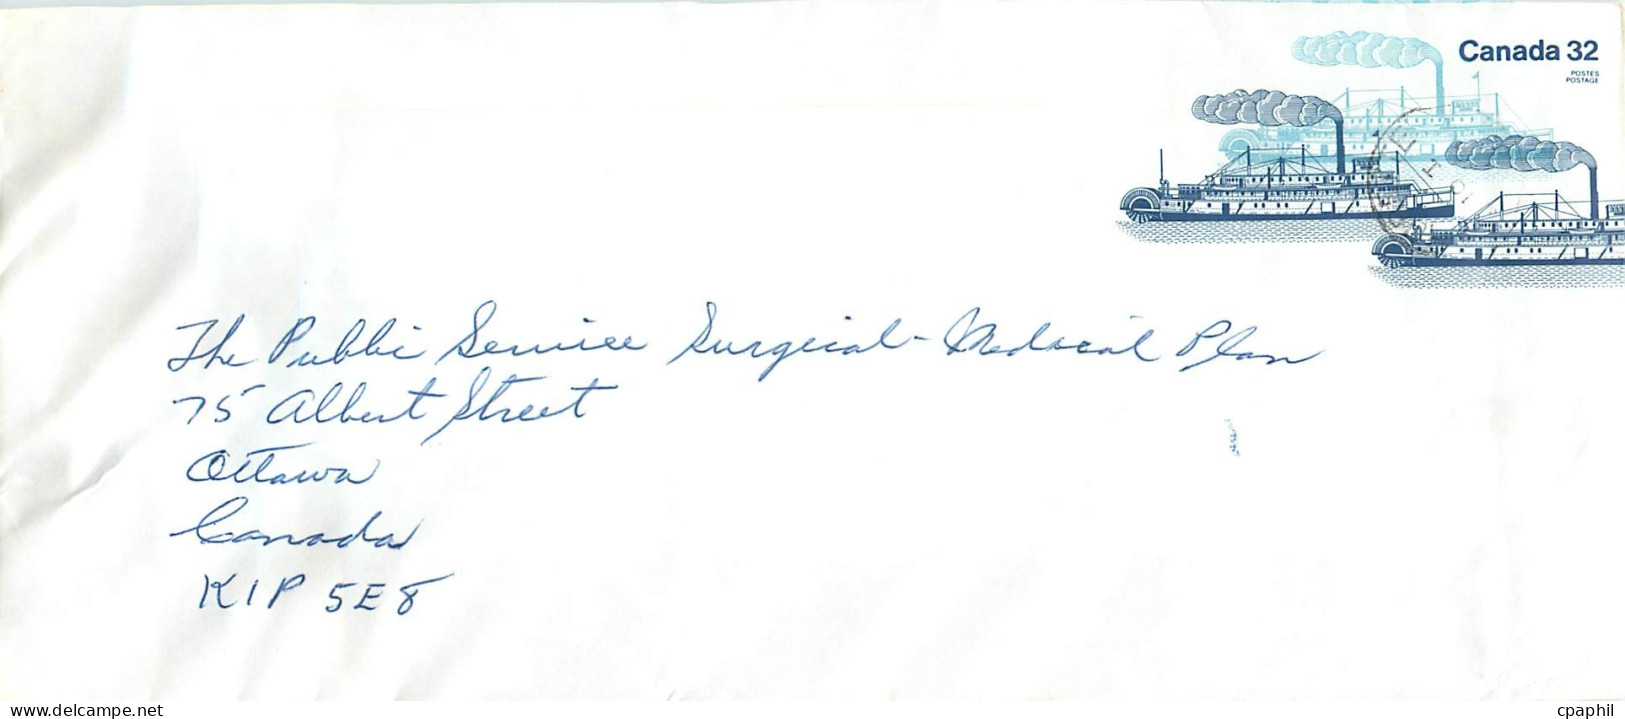 Canada 32
POSTES
POSTAGE
The Public Service Surgical-Medical Plan
75 Albert Street
Ottawa
Canada
K1P 5E8
www.delcampe.net
cpaphil